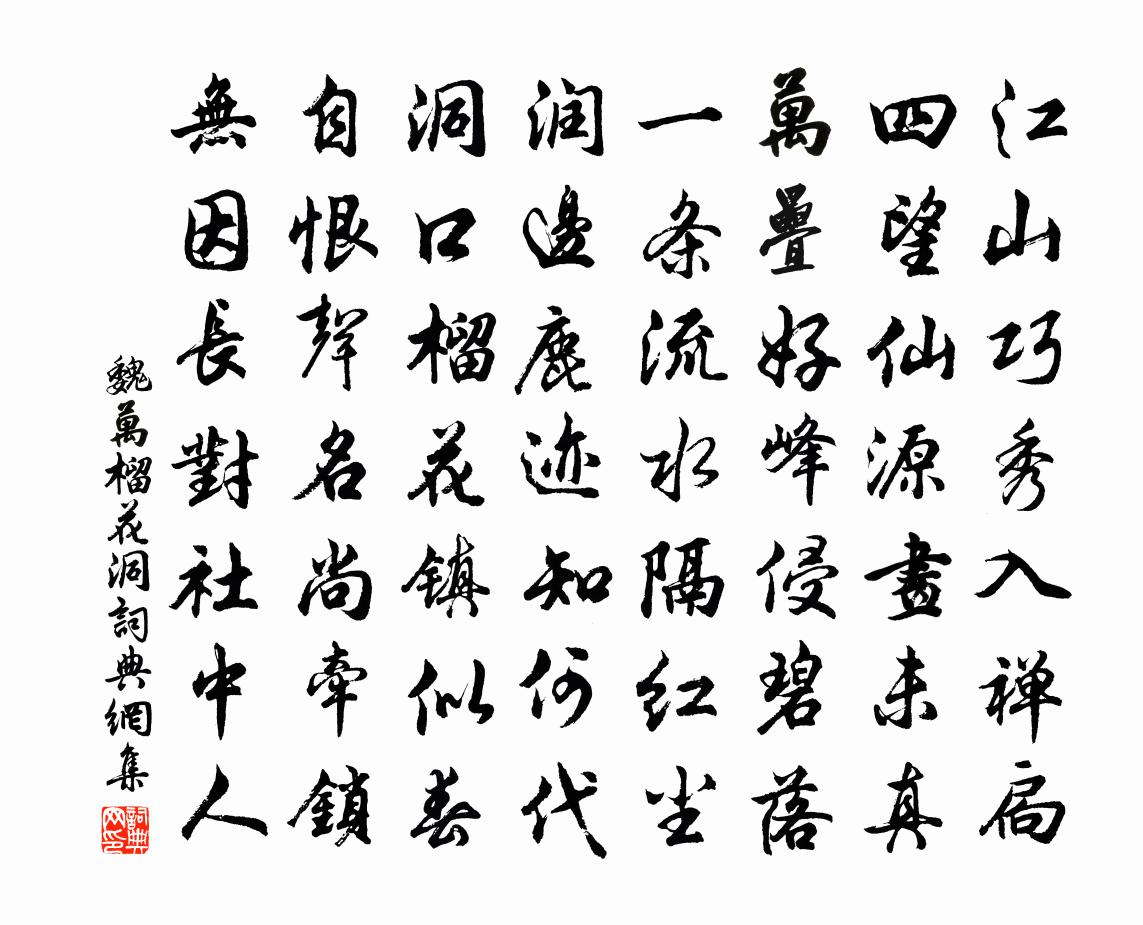 江山巧秀入禅扃
四望仙源畫未真
萬疊好峰侵碧落
一条流水隔红尘
润邊鹿迹知何代
洞口榴花鎮似春
自恨聲名尚牽鎖
無因長對社中人
魏萬榴花洞詞典網集
詞典网印